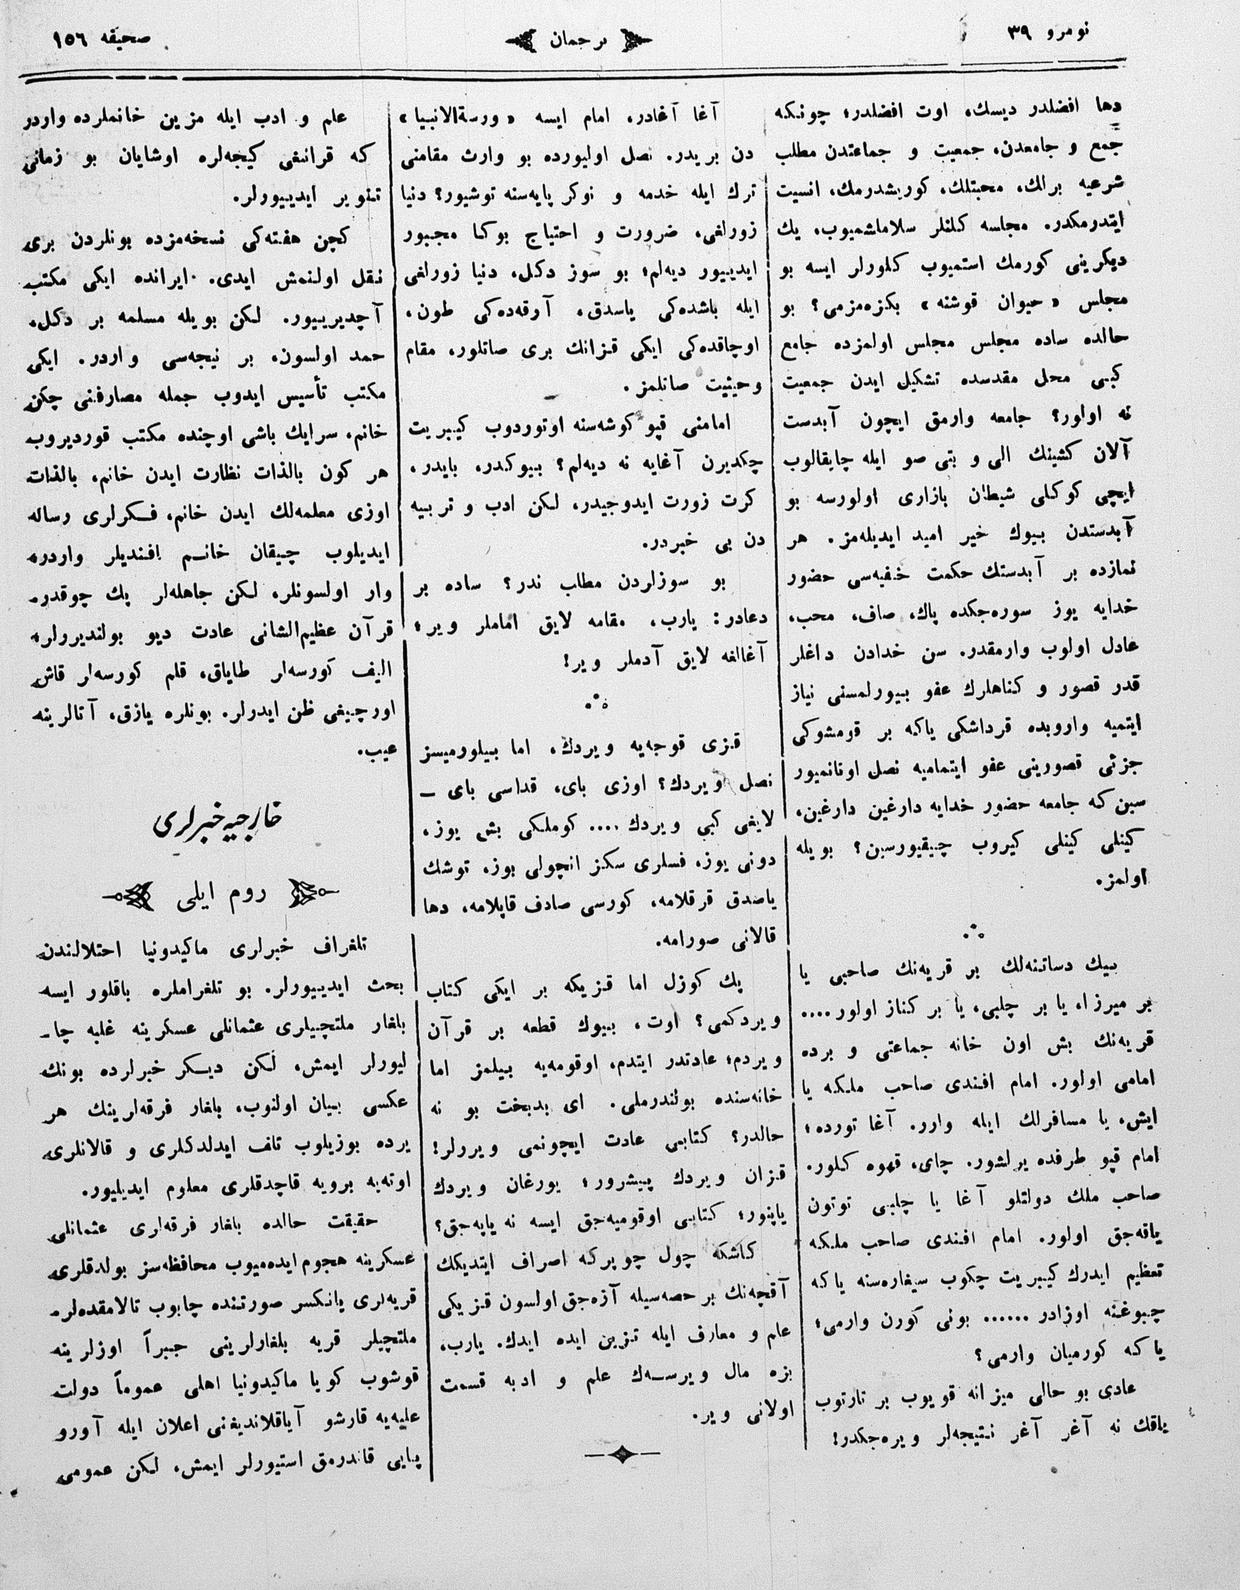 نومرو ٣٩
ترجمان
صحيفه ١٥٦
دها افضلدر ديسك، اوت افضلدر؛ چونكه
جمع و جامعدن، جمعيت و جماعتدن مطلب
شرعيه برلك، محبتلك، كوريشدرمك، انسيت
ايتدرمكدر. مجلسه كلنلر سلاملاشميوب، يك
ديكرينى كورمك استميوب كلورلر ايسه بو
مجلس «حيوان قوشنه» بكزه‌مزمى؟ بو
حالده ساده مجلس مجلس اولمزده جامع
كبى محل مقدسده تشكيل ايدن جمعيت
نه اولور؟ جامعه وارمق ايچون آبدست
آلان كشينك الى و بتى صو ايله چايقالوب
ايچى كوكلى شيطان بازارى اولورسه بو
آبدستدن بيوك خير اميد ايديله‌مز. هر
نمازده بر آبدستك حكمت خفيه‌سى حضور
خدايه يوز سوره‌جكده پاك، صاف، محب،
عادل اولوب وارمقدر. سن خدادن داغلر
قدر قصور و كناهلرك عفو بيورلمسنى نياز
ايتميه وارويده قرداشكى ياكه بر قومشوكى
جزئى قصورينى عفو ايتماميه نصل اوتانميور
سين كه جامعه حضور خدايه دارغين دارغين،
كينلى كينلى كيروب چيقيورسين؟ بويله
اولمز.
بيك دساتنه‌لك بر قريه‌نك صاحبى يا
بر ميرزا، يا بر چلبى، يا بر كناز اولور....
قريه‌نك بش اون خانه جماعتى و برده
امامى اولور. امام افندى صاحب ملكه يا
ايش، يا مسافرلك ايله وارر. آغا تورده؛
امام قپو طرفده يرلشور. چاى، قهوه كلور.
صاحب ملك دولتلو آغا يا چلبى توتون
ياقه‌جق اولور. امام افندى صاحب ملكه
تعظيم ايدرك كيبريت چكوب سيغاره‌سنه ياكه
چبوغنه اوزادر...... بونى كورن وارمى؛
ياكه كورميان وارمى؟
عادى بو حالى ميزانه قويوب بر تارتوب
ياقك نه آغر آغر نتيجه‌لر ويره‌جكدر!
آغا آغادر، امام ايسه «ورسةالانبيا»
دن بريدر. نصل اوليورده بو وارث مقامنى
ترك ايله خدمه و نوكر پايه‌سنه توشيور؟ دنيا
زورلغى، ضرورت و احتياج بوكا مجبور
ايدييور ديه‌لم؛ بو سوز دكل، دنيا زورلغى
ايله باشده‌كى ياسدق، آرقه‌ده‌كى طون،
اوچاقده‌كى ايكى قزانك برى صاتلور، مقام
وحيثيت صاتلمز.
امامنى قپو كوشه‌سنه اوتوردوب كيبريت
چكديرن آغايه نه ديه‌لم؟ بيوكدر، بايدر،
كرت زورت ايدوجيدر، لكن ادب و تربيه
دن بى خبردر.
بو سوزلردن مطلب ندر؟ ساده بر
دعادر: يارب، مقامه لايق اماملر وير؛
آغالغه لايق آدملر وير!
قزى قوجه‌يه ويردك، اما بيلورميسز
نصل ويردك؟ اوزى باى، قداسى باى —
لايغى كبى ويردك.... كوملكى بش يوز،
دونى يوز، فسلرى سكز انچولى يوز، توشك
ياصدق قرقلامه، كورسى صادف قاپلامه، دها
قالانى صورامه.
پك كوزل اما قزيكه بر ايكى كتاب
ويردكمى؟ اوت، بيوك قطعه بر قرآن
ويردم؛ عادتدر ايتدم، اوقومه‌يه بيلمز اما
خانه‌سنده بولندرملى. اى بدبخت بو نه
حالدر؟ كتابى عادت ايچونمى ويررلر!
قزان ويردك پيشرور؛ يورغان ويردك
ياپنور؛ كتابى اوقوميه‌جق ايسه نه ياپه‌جق؟
كاشكه چول چويركه اصراف ايتديكك
آقچه‌نك بر حصه‌سيله آزه‌جق اولسون قزيكى
علم و معارف ايله تزيين ايده ايدك. يارب،
بزه مال ويرسه‌ك علم و ادبه قسمت
اولانى وير.
علم و ادب ايله مزين خانملرده واردر
كه قرانغى كيجه‌لره اوشايان بو زمانى
تنوير ايدييورلر.
كچن هفته‌كى نسخه‌مزده بونلردن برى
نقل اولنمش ايدى. ايرانده ايكى مكتب
آچديرييور. لكن بويله مسلمه بر دكل،
حمد اولسون، بر نيجه‌سى واردر. ايكى
مكتب تأسيس ايدوب جمله مصارفنى چكن
خانم، سرايك باشى اوچنده مكتب قورديروب
هر كون بالذات نظارت ايدن خانم، بالذات
اوزى معلمه‌لك ايدن خانم، فكرلرى رساله
ايديلوب چيقان خانم افنديلر واردر،
وار اولسونلر، لكن جاهله‌لر پك چوقدر.
قرآن عظيم‌الشانى عادت ديو بولنديررلر،
اليف كورسه‌لر طاياق، قلم كورسه‌لر قاش
اورچيغى ظن ايدرلر. بونلره يازق، آتالرينه
عيب.
خارجيه خبرلرى
روم ايلى
تلغراف خبرلرى ماكيدونيا احتلالندن
بحث ايدييورلر. بو تلغراملره باقلور ايسه
بلغار ملتچيلرى عثمانلى عسكرينه غلبه چا‌ـ
ليورلر ايمش، لكن ديكر خبرلرده بونك
عكسى بيان اولنوب، بلغار فرقه‌لرينك هر
يرده بوزيلوب تلف ايدلدكلرى و قالانلرى
اوته‌يه برويه قاچدقلرى معلوم ايديليور.
حقيقت حالده بلغار فرقه‌لرى عثمانلى
عسكرينه هجوم ايده‌ميوب محافظه‌سز بولدقلرى
قريه‌لرى يانكسر صورتنده چاپوب تالامقده‌لر.
ملتچيلر قريه بلغارلرينى جبراً اوزلرينه
قوشوب كويا ماكيدونيا اهلى عموماً دولت
عليه‌يه قارشو آياقلانديغنى اعلان ايله آورو
پايى قاندرمق استيورلر ايمش، لكن عمومى